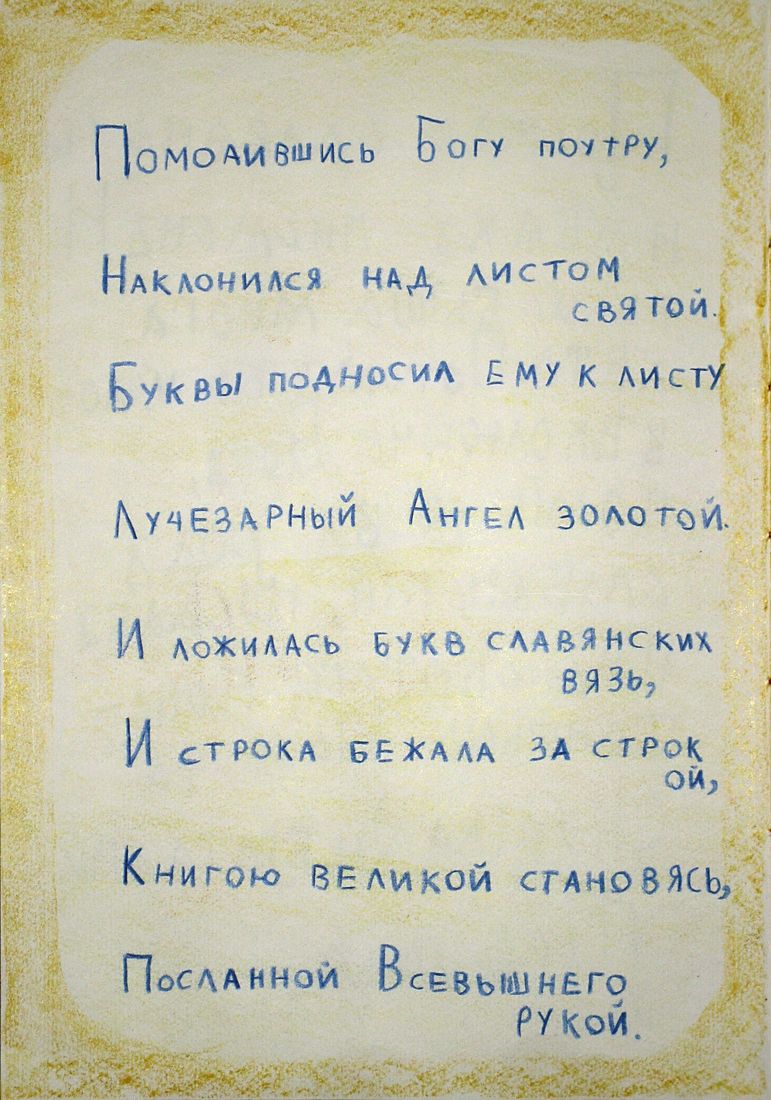 Помолившись Богу поутру,
Наклонился над листом
святой.
Буквы подносил ему к листу
Лучезарный Ангел золотой.
И ложилась букв славянских
вязь,
И строка бежала за строк
ой,
Книгою великой становясь,
Посланной Всевышнего
рукой.